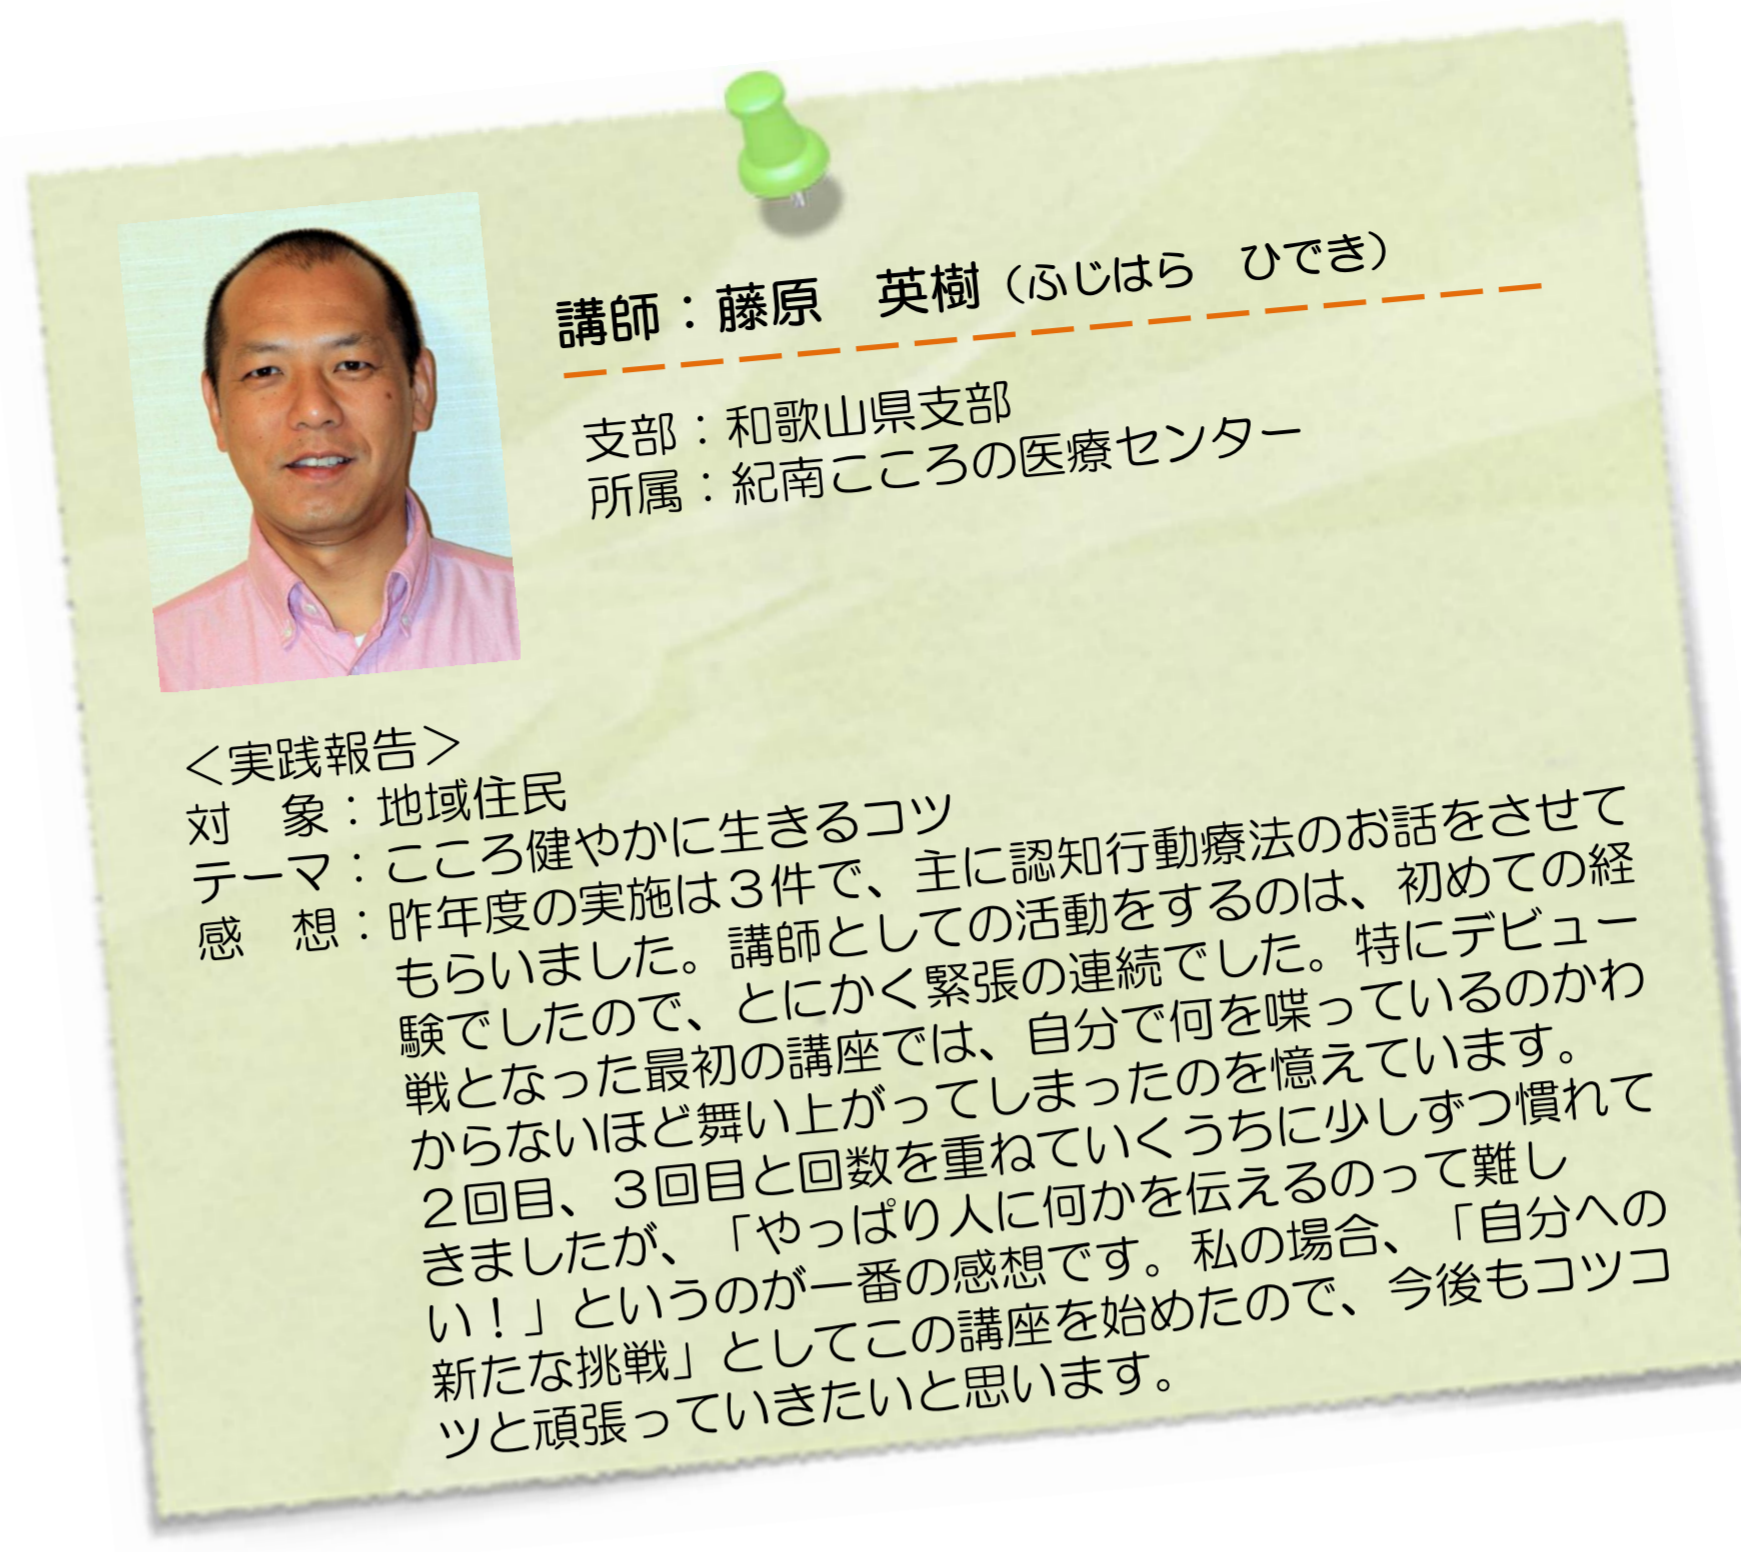 講師：藤原　英樹（ふじはら　ひでき）
支部：和歌山県支部
所属：紀南こころの医療センター
＜実践報告＞
対　象：地域住民
テーマ：こころ健やかに生きるコツ
感　想：昨年度の実施は３件で、主に認知行動療法のお話をさせて
もらいました。講師としての活動をするのは、初めての経
験でしたので、とにかく緊張の連続でした。特にデビュー
戦となった最初の講座では、自分で何を喋っているのかわ
からないほど舞い上がってしまったのを憶えています。
２回目、３回目と回数を重ねていくうちに少しずつ慣れて
きましたが、「やっぱり人に何かを伝えるのって難し
い！」というのが一番の感想です。私の場合、「自分への
新たな挑戦」としてこの講座を始めたので、今後もコツコ
ツと頑張っていきたいと思います。